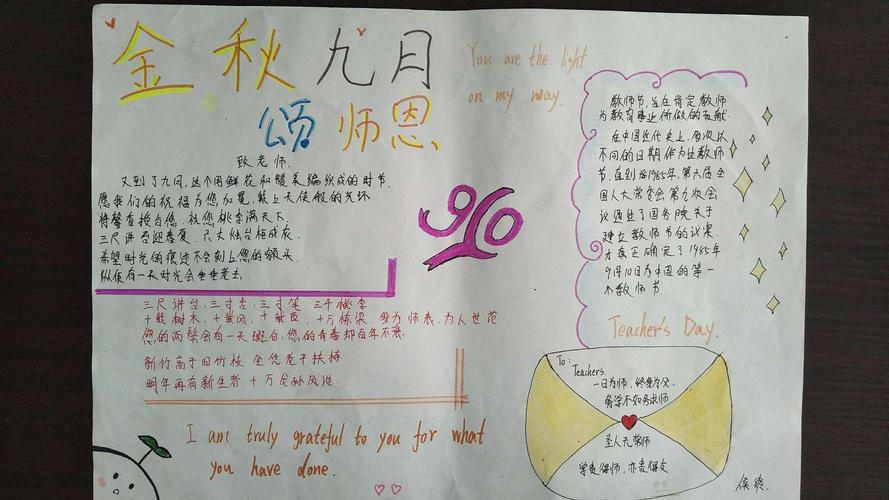 金秋九月
颂师恩
You are the light
on my way.
致老师.
又到了九月,这个用鲜花和赞美编织成的时节.
愿我们的祝福为您加冕,戴上天使般的光环.
将馨香披自您 祝您桃李满天下.
三尺讲台迎春夏.
希望时光的痕迹不会刻上您的额头.
纵使有一天时光会垂垂老去.
910
三尺讲台,三寸舌,三寸笔,三千桃李
十载树木,十载风,十载雨,十万栋梁.身为师表,为人世范
您的两鬓会有一天斑白,您的青春却百年不衰.
新竹高于旧竹枝 全凭老干扶持
明年再有新生者 十万
I am truly grateful to you for what
you have done.
教师节,旨在肯定教师
为教育事业所做的贡献.
在中国近代史上,多次以
不同的日期作为过教师
节.直到1985年,第六届全
国人大常委会第九次会
议通过了国务院关于
建立教师节的议案.
才真正确定了1985年
9月10日为中国的第一
个教师节.
Teacher's Day.
To:
Teachers.
一日为师,终身为父.
务学不如务求师
圣人无常师
学贵得师,亦贵得友